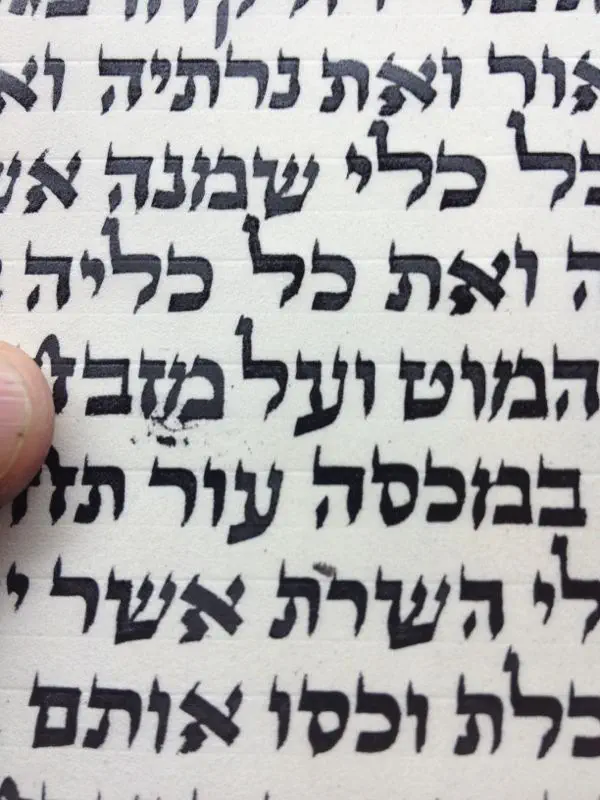 אור ואת נרתיה וא
כל כלי שמנה אש
ה ואת כל כליה
המוט ועל מזבח
במכסה עור
לי השרת אשר י
כלת וכסו אותם